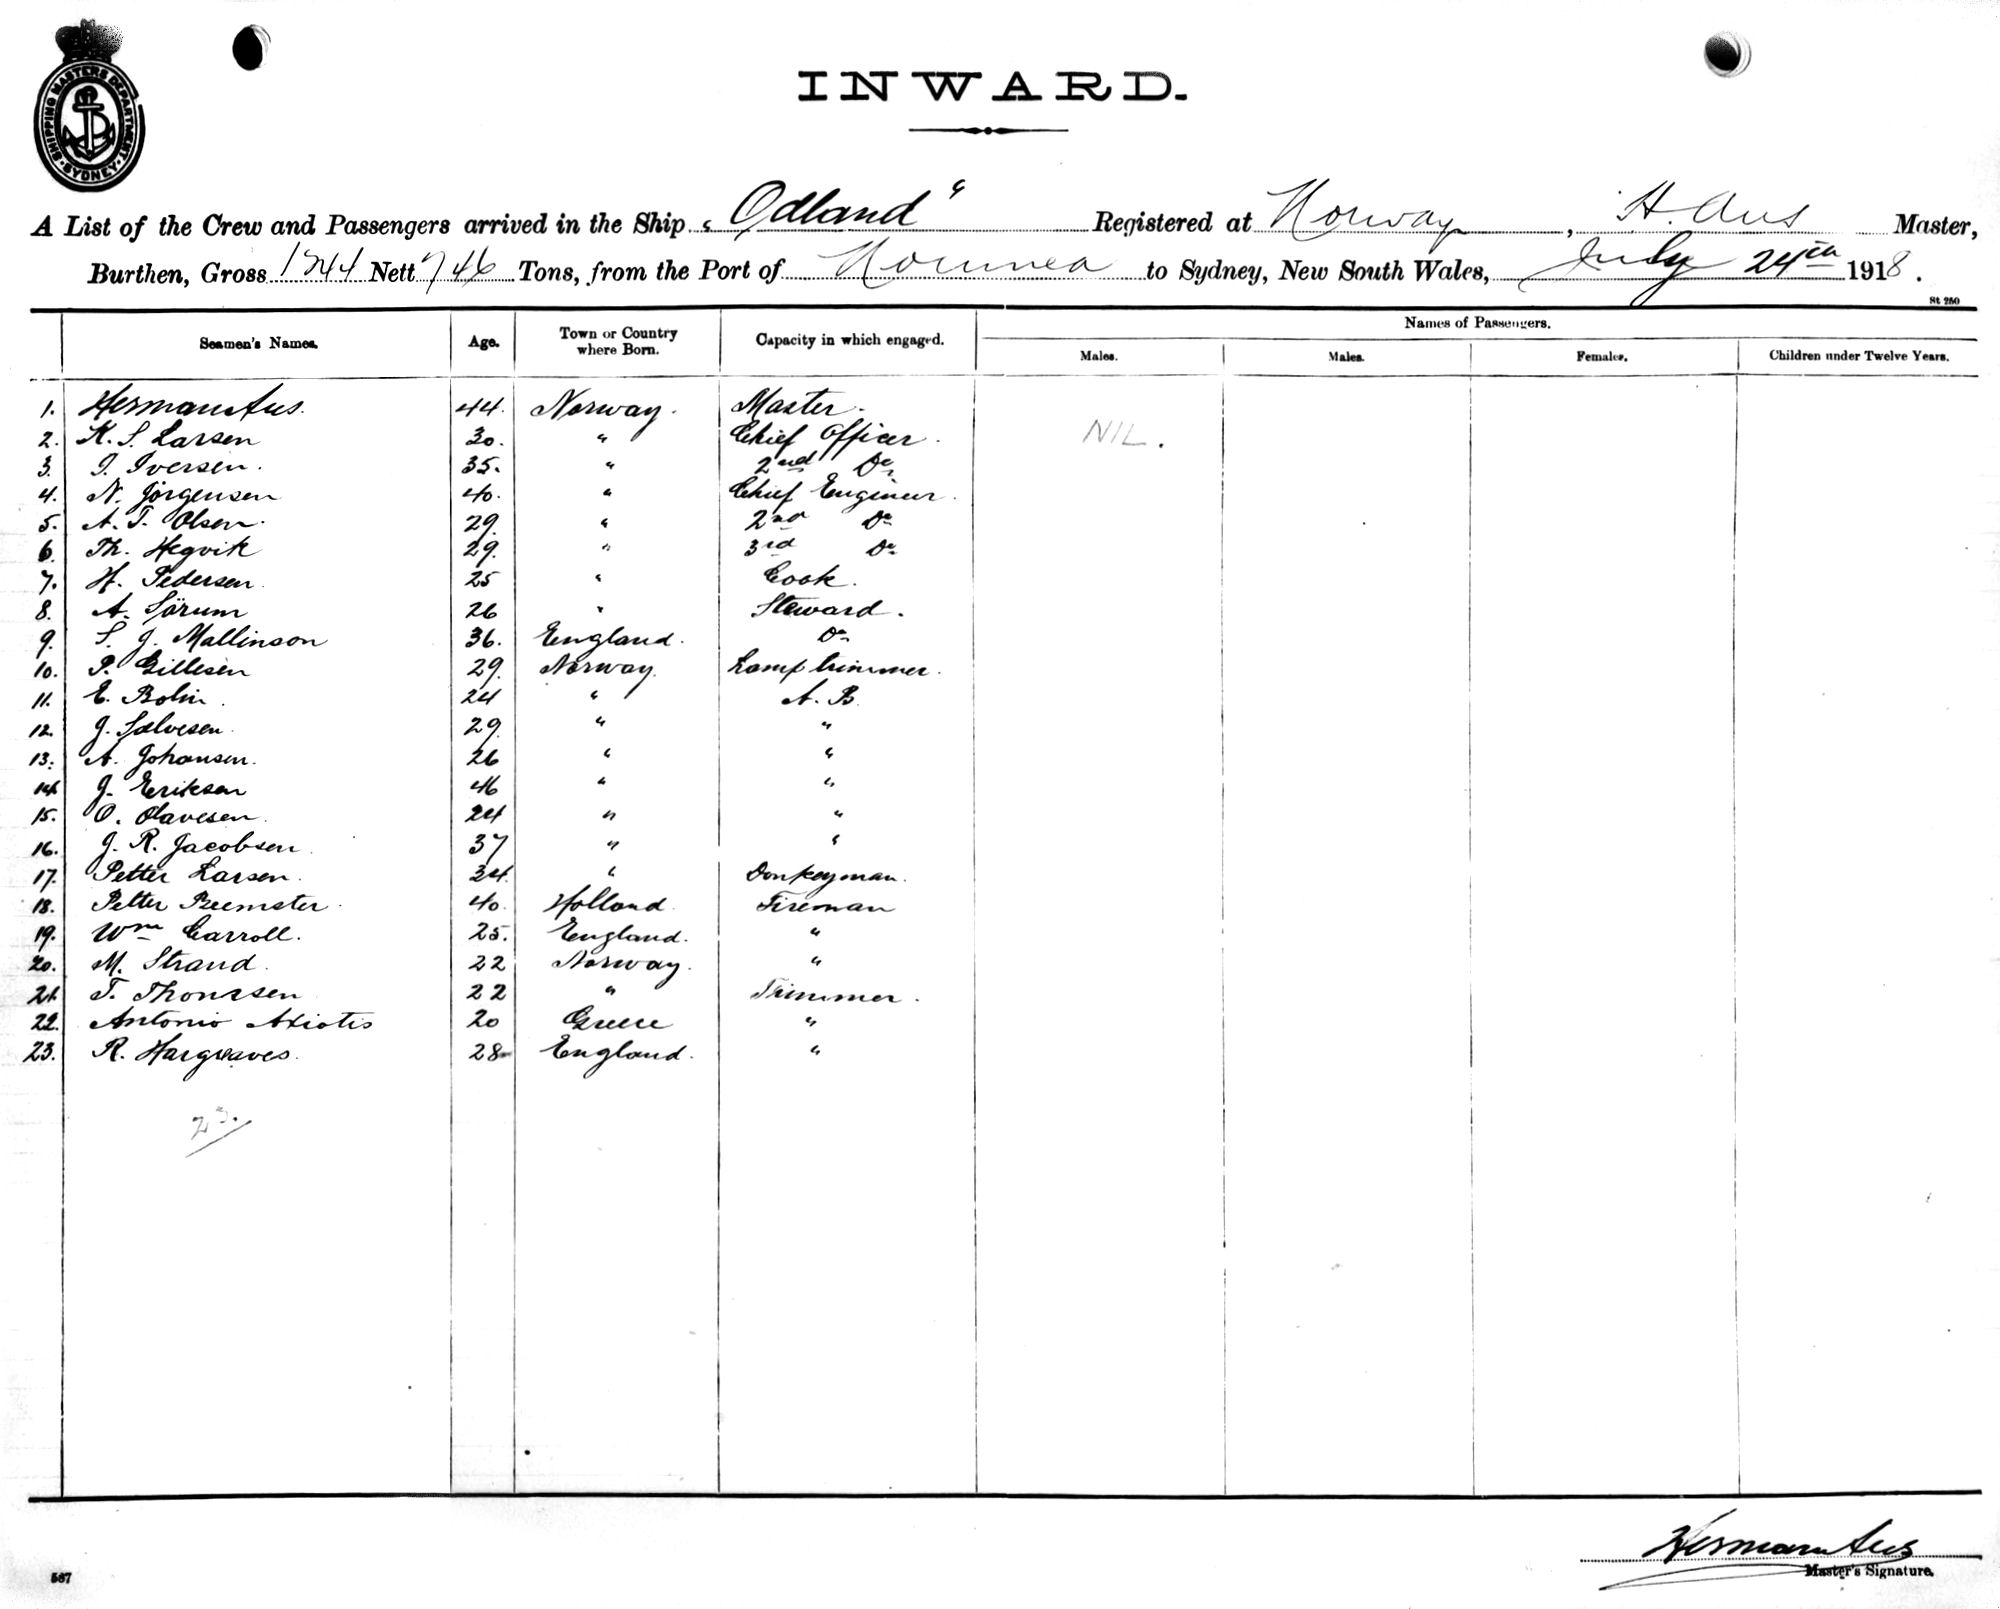 SHIPPING MASTERS DEPARTMENT. SYDNEY
INWARD.
A List of the Crew and Passengers arrived in the Ship "Odland" Registered at Norway, H. Aus Master,
Burthen, Gross 1244 Nett 746 Tons, from the Port of Noumea to Sydney, New South Wales, July 24th 1918.
St 250
Seamen's Names. Age. Town or Country where Born. Capacity in which engaged. Names of Passengers.
Males. Males. Females. Children under Twelve Years.
1. Herman Aus. 44. Norway. Master.
2. K. S. Larsen 30. " Chief Officer. NIL.
3. I. Iversen. 35. " 2nd Do
4. N. Jörgensen 40. " Chief Engineer.
5. A. T. Olsen. 29. " 2nd Do
6. Th. Hegvik 29. " 3rd Do
7. H. Pedersen. 25 " Cook.
8. A. Sörum 26 " Steward.
9. S. J. Mallinson 36. England. Do
10. P. Gillesen 29. Norway. Lamptrimmer.
11. E. Bolin. 24 " A. B.
12. J. Salvesen. 29. " "
13. A. Johansen. 26 " "
14. J. Eriksen 46 " "
15. O. Olavesen. 24 " "
16. J. R. Jacobsen. 37 " "
17. Petter Larsen. 34. " Donkeyman.
18. Petter Beemster. 40. Holland. Fireman
19. Wm Carroll. 25. England. "
20. M. Strand. 22 Norway. "
21. T. Thomssen 22 " Trimmer.
22. Antonio Axiotis 20 Greece "
23. R. Hargreaves. 28 England. "
23.
Herman Aus
Master's Signature.
567